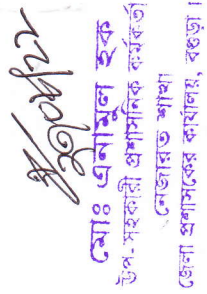 মোঃ এনামুল হক
উপ-সহকারী প্রশাসনিক কর্মকর্তা
নেজারত শাখা
জেলা প্রশাসকের কার্যালয়, বগুড়া।